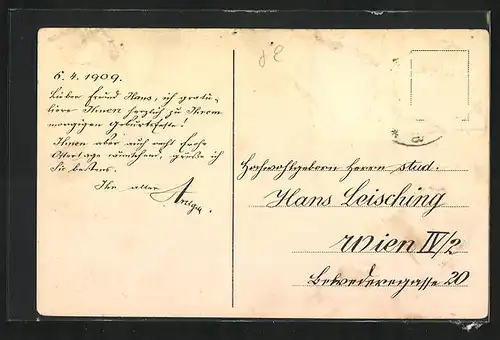 6. 4. 1909.
Lieber Freund Hans, ich gratu-
liere Ihnen herzlich zu Ihrem
morgigen Geburtsfeste!
Ihnen aber auch recht frohe
Ostertage wünschend, grüße ich
Sie bestens.
Ihr alter
Hochwohlgeboren Herrn stud.
Hans Leisching
Wien IV/2
Belvederegasse 20